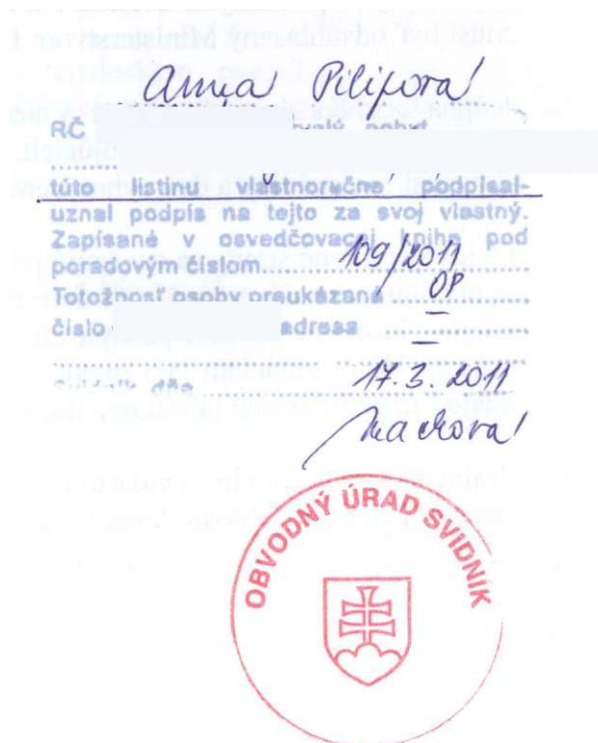 Anna Pilipová
RČ
túto listinu vlastnoručne podpísal-
uznal podpis na tejto za svoj vlastný.
Zapísané v osvedčovacej knihe pod
poradovým číslom.... 109/2011
Totožnosť osoby preukázaná OP
číslo adresa –
–
dňa 17.3.2011
OBVODNÝ ÚRAD SVIDNÍK